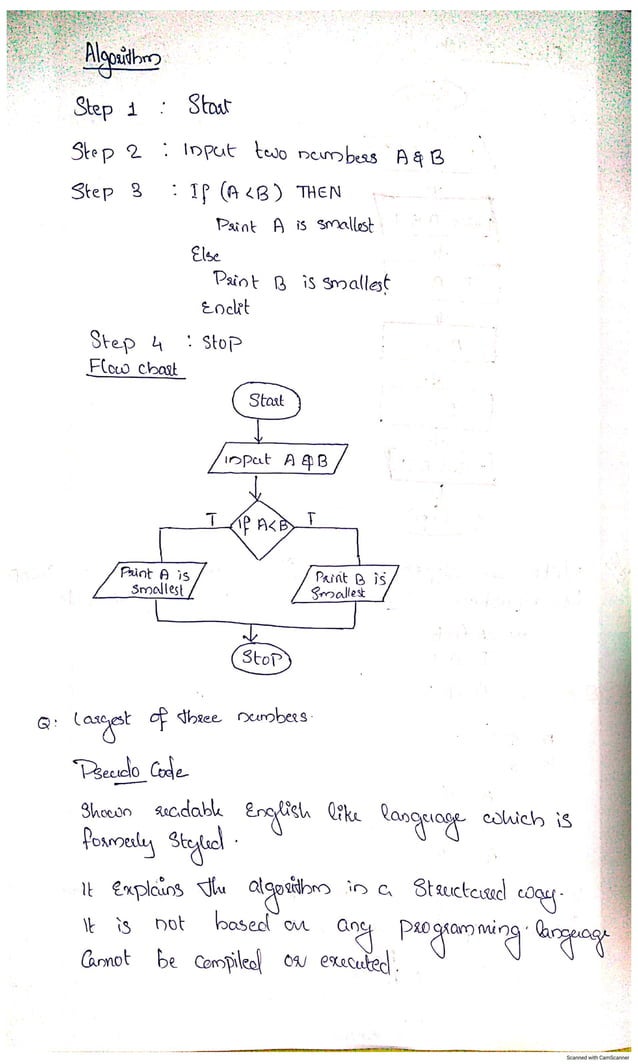 Algorithm
Step 1 : Start
Step 2 : Input two numbers A & B
Step 3 : If (A < B) THEN
Print A is smallest
Else
Print B is smallest
Endif
Step 4 : Stop
Flow chart
Start
input A & B
T if A<B T
Print A is smallest
Print B is smallest
Stop
Q: Largest of three numbers.
Pseudo Code
Shown readable English like language which is
formerly styled.
It Explains the algorithm in a Structured way.
It is not based on any programming language
Cannot be compiled or executed.
Scanned with CamScanner